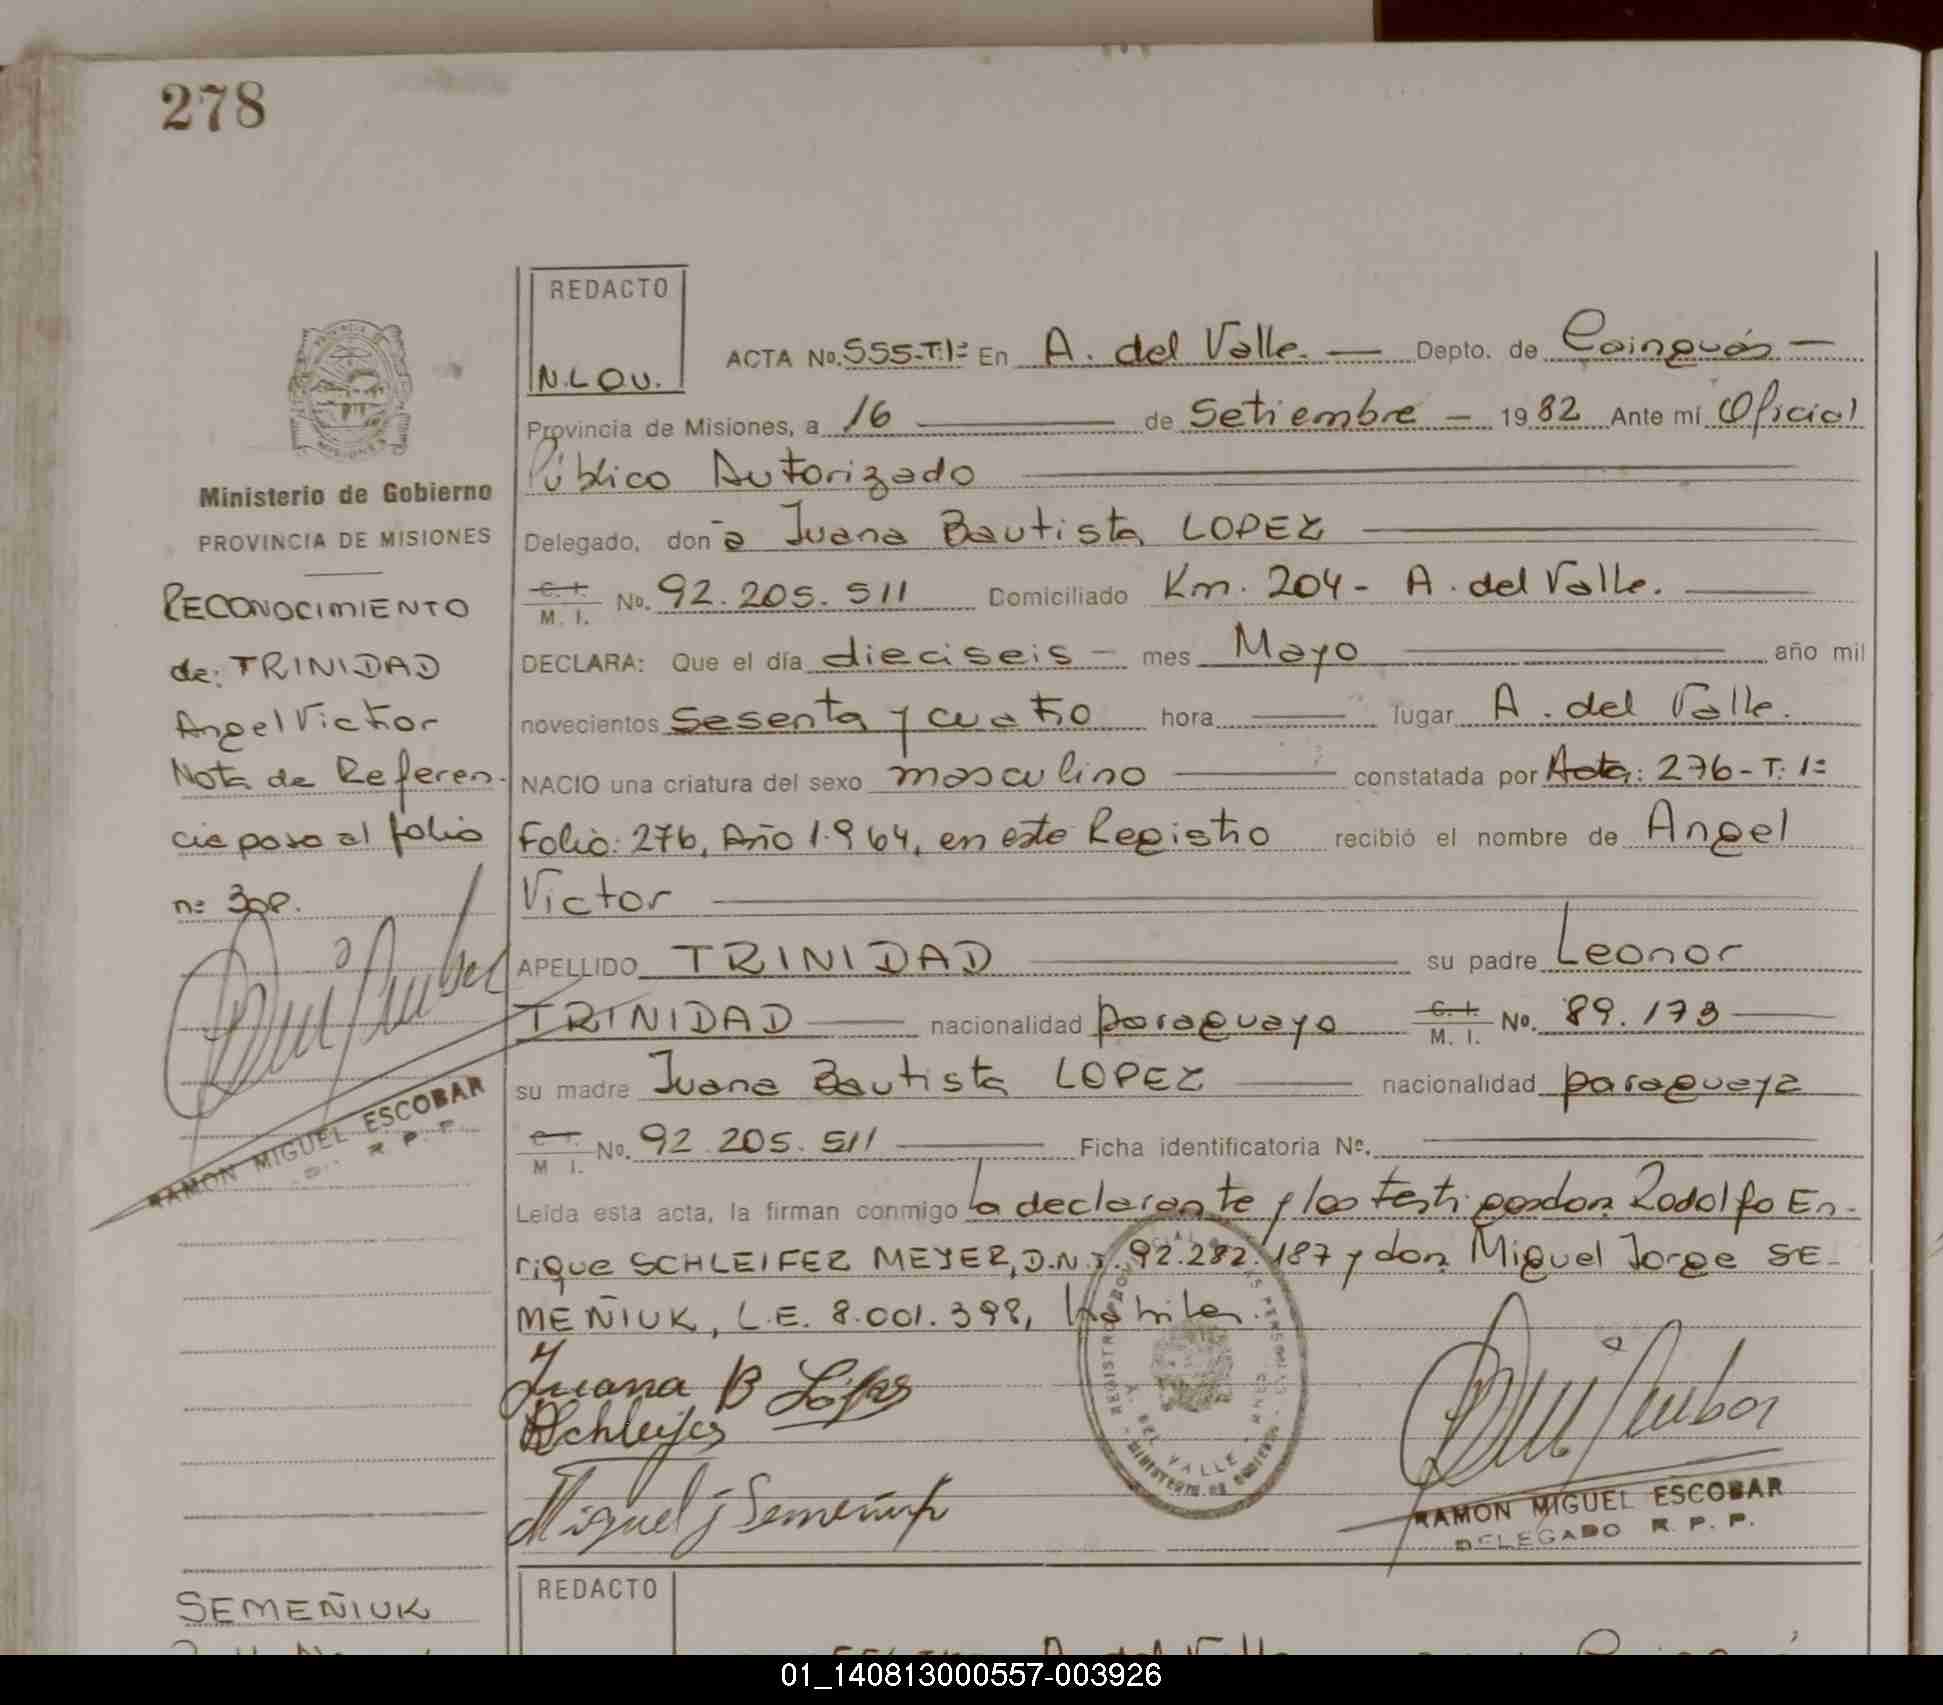 278
REDACTO
N.LOU.
ACTA No. 555-T.1º En A. del Valle. — Depto. de Cainguás —
Provincia de Misiones, a 16 — de Setiembre — 1982 Ante mí Oficial
Público Autorizado
Delegado, doña Juana Bautista LOPEZ
C. I.
M. I. No. 92.205.511 Domiciliado Km. 204 - A. del Valle.
DECLARA: Que el día dieciseis — mes Mayo — año mil
novecientos sesenta y cuatro hora — lugar A. del Valle.
NACIO una criatura del sexo masculino — constatada por Acta: 276-T. 1º
Folio: 276, Año 1.964, en este Registro recibió el nombre de Angel
Victor
APELLIDO TRINIDAD — su padre Leonor
TRINIDAD — nacionalidad paraguayo C. I. M. I. No. 89.173
su madre Juana Bautista LOPEZ — nacionalidad paraguaya
C. I.
M I. No. 92.205.511 — Ficha identificatoria Nº.
Leída esta acta, la firman conmigo la declarante y los testigos don Rodolfo En-
rique SCHLEIFER MEYER, D.N.I. 92.282.187 y don Miguel Jorge SE-
MEÑIUK, L.E. 8.001.398, hábiles.
Juana B López
RSchleifer
Miguel J Semeñiuk
A. DEL VALLE
RAMON MIGUEL ESCOBAR
DELEGADO R. P. P.
Ministerio de Gobierno
PROVINCIA DE MISIONES
RECONOCIMIENTO
de: TRINIDAD
Angel Victor
Nota de Referen-
cia paso al folio
nº
RAMON MIGUEL ESCOBAR
R. P. P.
SEMEÑIUK
REDACTO
01_140813000557-003926